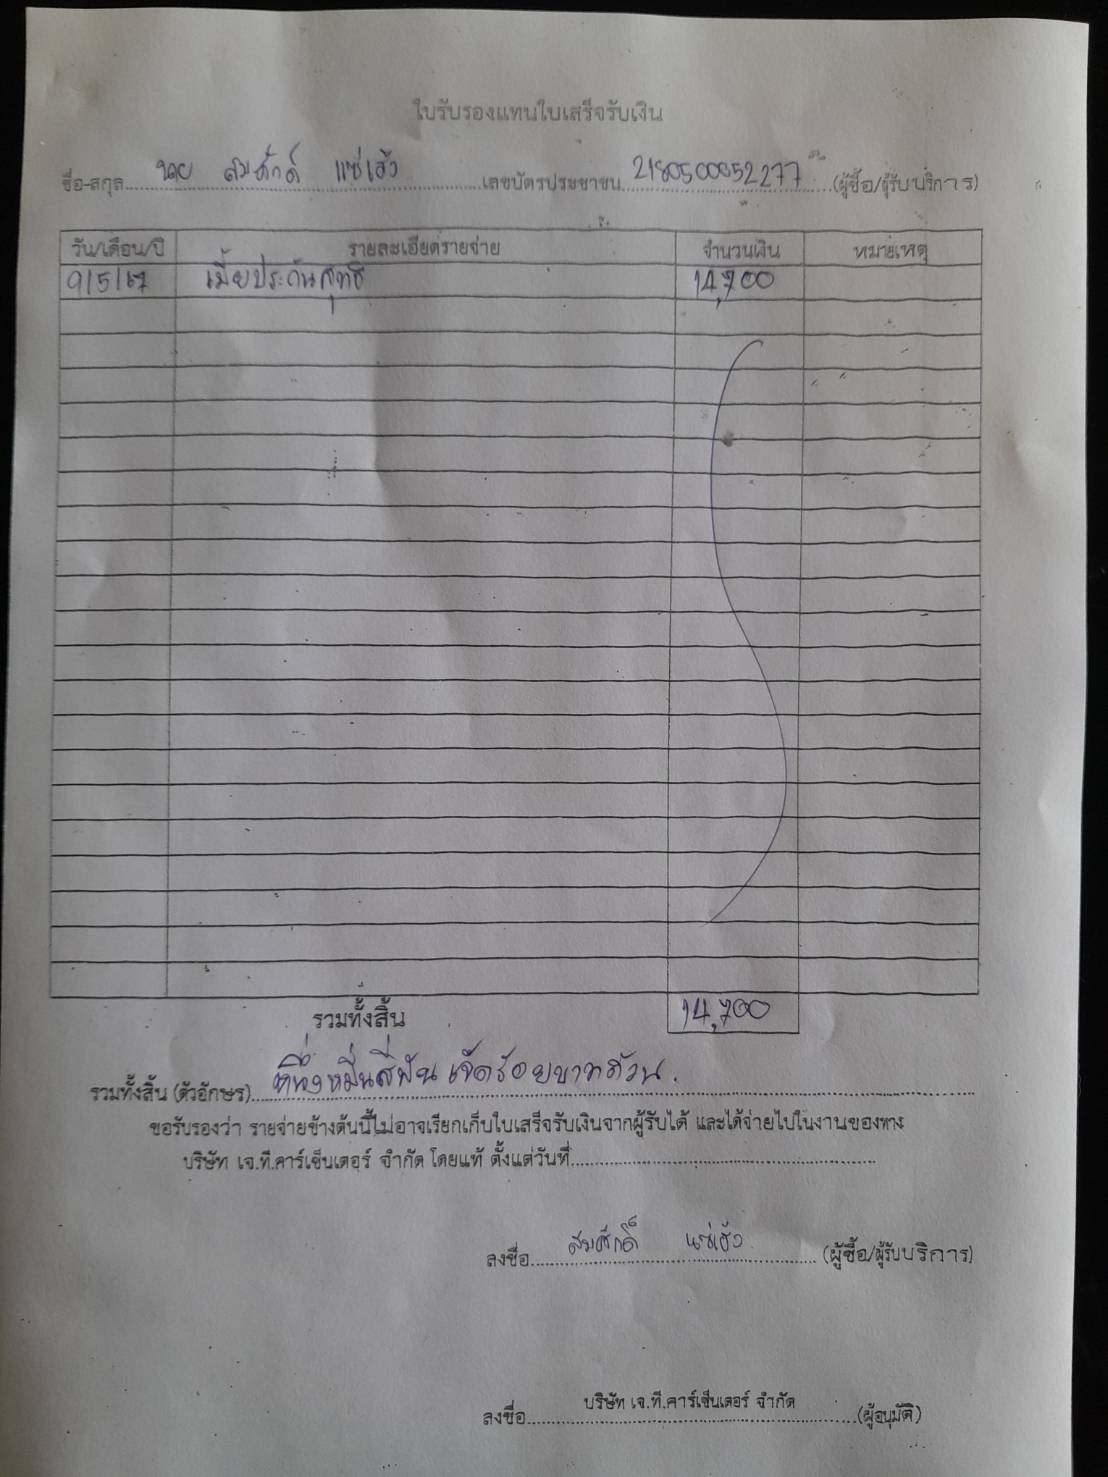 ใบรับรองแทนใบเสร็จรับเงิน
ชื่อ-สกุล นาย สมศักดิ์ แซ่เฮ้ง เลขบัตรประชาชน 2180500052277 (ผู้ซื้อ/ผู้รับบริการ)
วัน/เดือน/ปี รายละเอียดรายจ่าย จำนวนเงิน หมายเหตุ
9/5/67 เบี้ยประกันสุทธิ 14,700
รวมทั้งสิ้น 14,700
รวมทั้งสิ้น (ตัวอักษร) หนึ่งหมื่นสี่พันเจ็ดร้อยบาทถ้วน.
ขอรับรองว่า รายจ่ายข้างต้นนี้ไม่อาจเรียกเก็บใบเสร็จรับเงินจากผู้รับได้ และได้จ่ายไปในงานของทาง
บริษัท เจ.ที.คาร์เซ็นเตอร์ จำกัด โดยแท้ ตั้งแต่วันที่
ลงชื่อ สมศักดิ์ แซ่เฮ้ง (ผู้ซื้อ/ผู้รับบริการ)
ลงชื่อ บริษัท เจ.ที.คาร์เซ็นเตอร์ จำกัด (ผู้อนุมัติ)